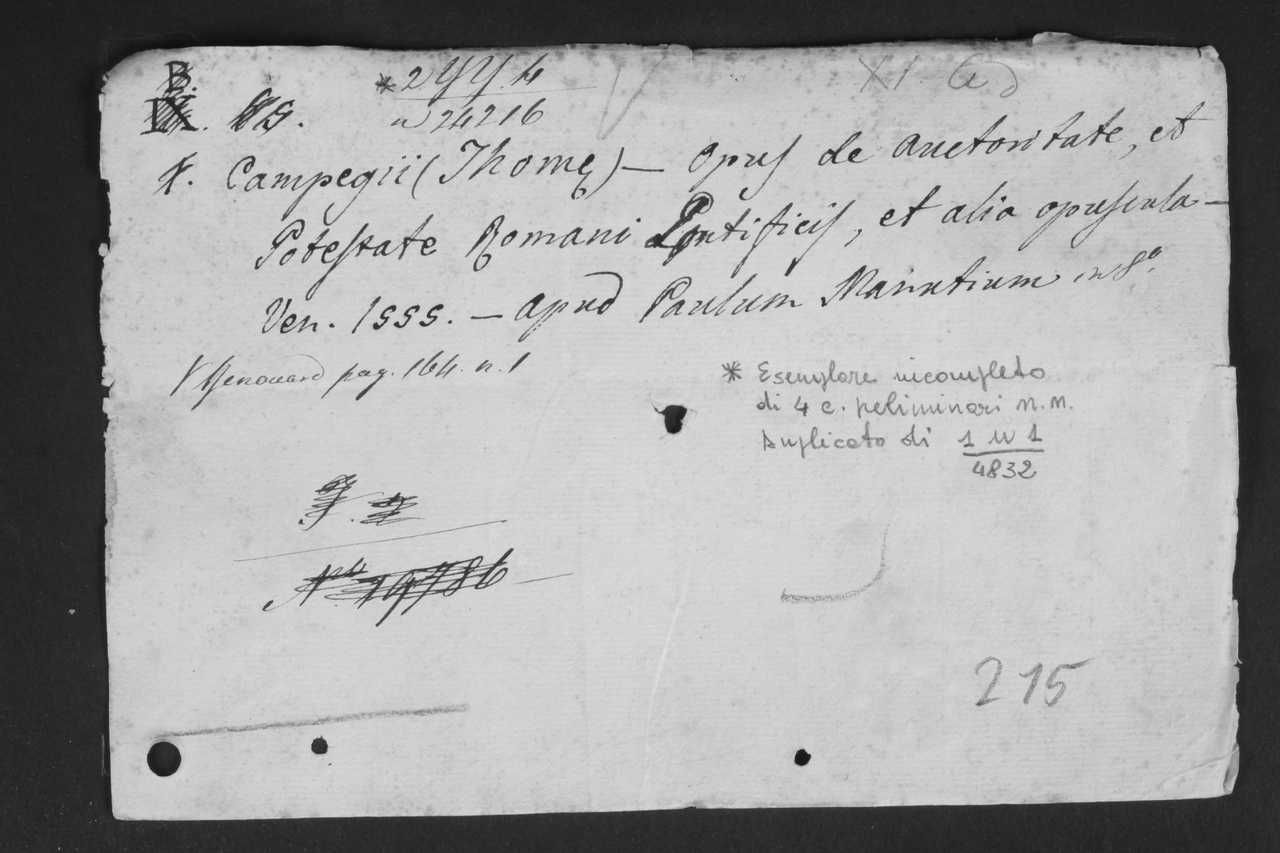 B.
* 2 YY. 4
n 24216
S.
Campegii (Thomę) — Opus de Auctoritate, et
Potestate Romani Pontificis, et alia opuscula —
Ven. 1555. — apud Paulum Manutium in 8.º
V Renouard pag. 164. n. 1
* Esemplare incompleto
di 4 c. preliminari n. n.
Duplicato di 1 W 1
4832
Nº 19786
215